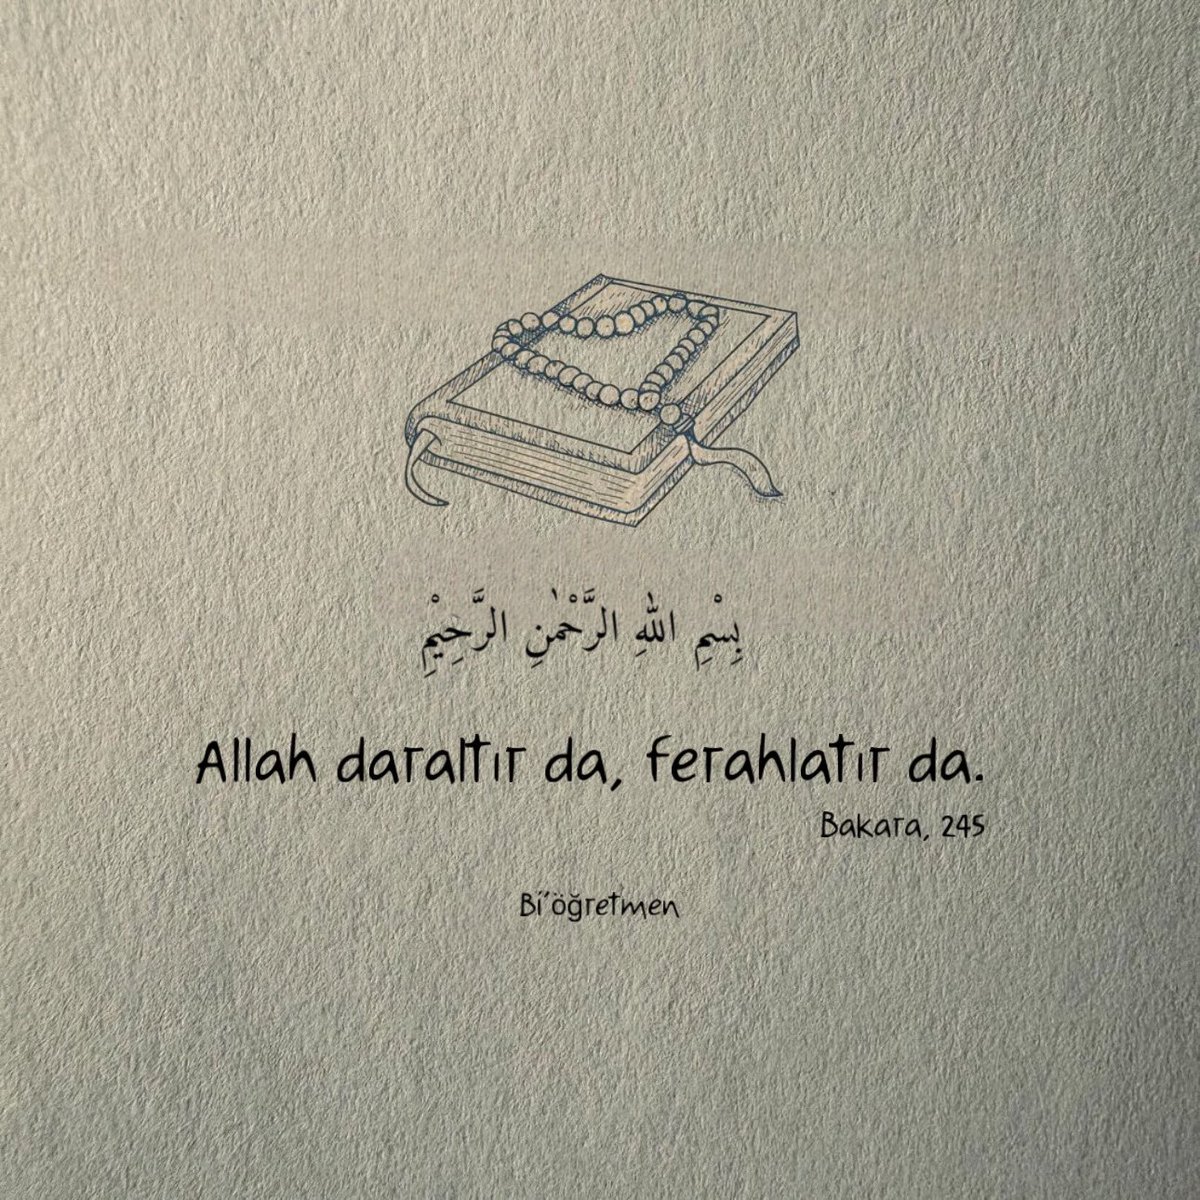 بِسْمِ اللّٰهِ الرَّحْمٰنِ الرَّحِيْمِ
Allah daraltır da, ferahlatır da.
Bakara, 245
Bi'öğretmen